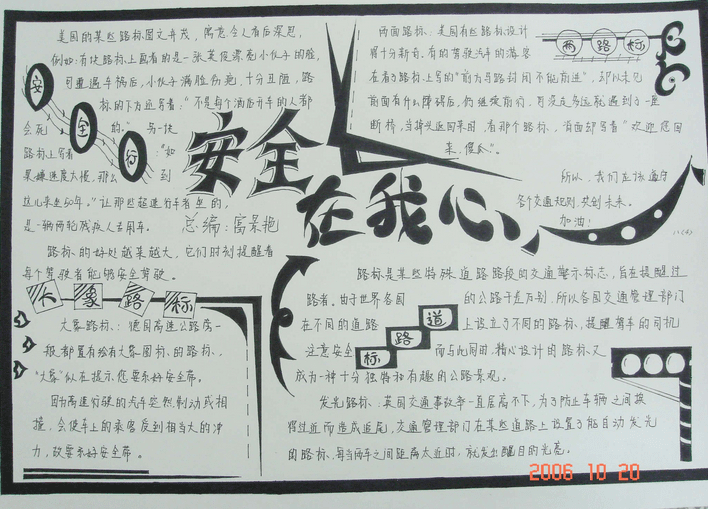 美国的某些路标图文并茂，寓意令人看后深思，
例如：有块路标上画着的是一张英俊漂亮小伙子的脸，
可遭遇车祸后，小伙子满脸伤疤，十分丑陋，路
标的下方还写着：“不是每个酒后开车的人都
会死的。”另一块
路标上写着：“如
果嫌速度太慢，那么到
这儿来走50年。”让那些超速行车者坐的，
是一辆两轮残疾人专用车。
路标的好处越来越大，它们时刻提醒着
每个驾驶者能够安全驾驶。
安全行
安全
在我心
总编：高景艳
两面路标
两面路标：美国有些路标设计
得十分新奇，有的驾驶汽车的游客
在看了路标上写的“前方马路封闭不能前进”，却以未见
前面有什么障碍后，仍继续前行，可没走多远就遇到了一座
断桥，当掉头返回来时，看那个路标，背面却写着“欢迎您回
来，傻瓜”。
所以，我们应该遵守
各个交通规则，共创未来。
加油！
八(4)
大象路标
大象路标：德国高速公路旁一
般都置有绘有大象图标的路标，
“大象”似在提示您要系好安全带。
因为高速行驶的汽车突然刹动或相
撞，会使车上的乘客受到相当大的冲
力，故要系好安全带。
道路标
路标是某些特殊道路路段的交通警示标志，旨在提醒过
路者。由于世界各国的公路千差万别，所以各国交通管理部门
在不同的道路上设立了不同的路标，提醒驾车的司机
注意安全而与此同时，精心设计的路标又
成为一种十分独特和有趣的公路景观。
发光路标：英国交通事故率一直居高不下，为了防止车辆之间挨
得过近而造成追尾，交通管理部门在某些道路上设置了能自动发光
的路标，每当两车之间距离太近时，就发出醒目的光亮。
2006 10 20